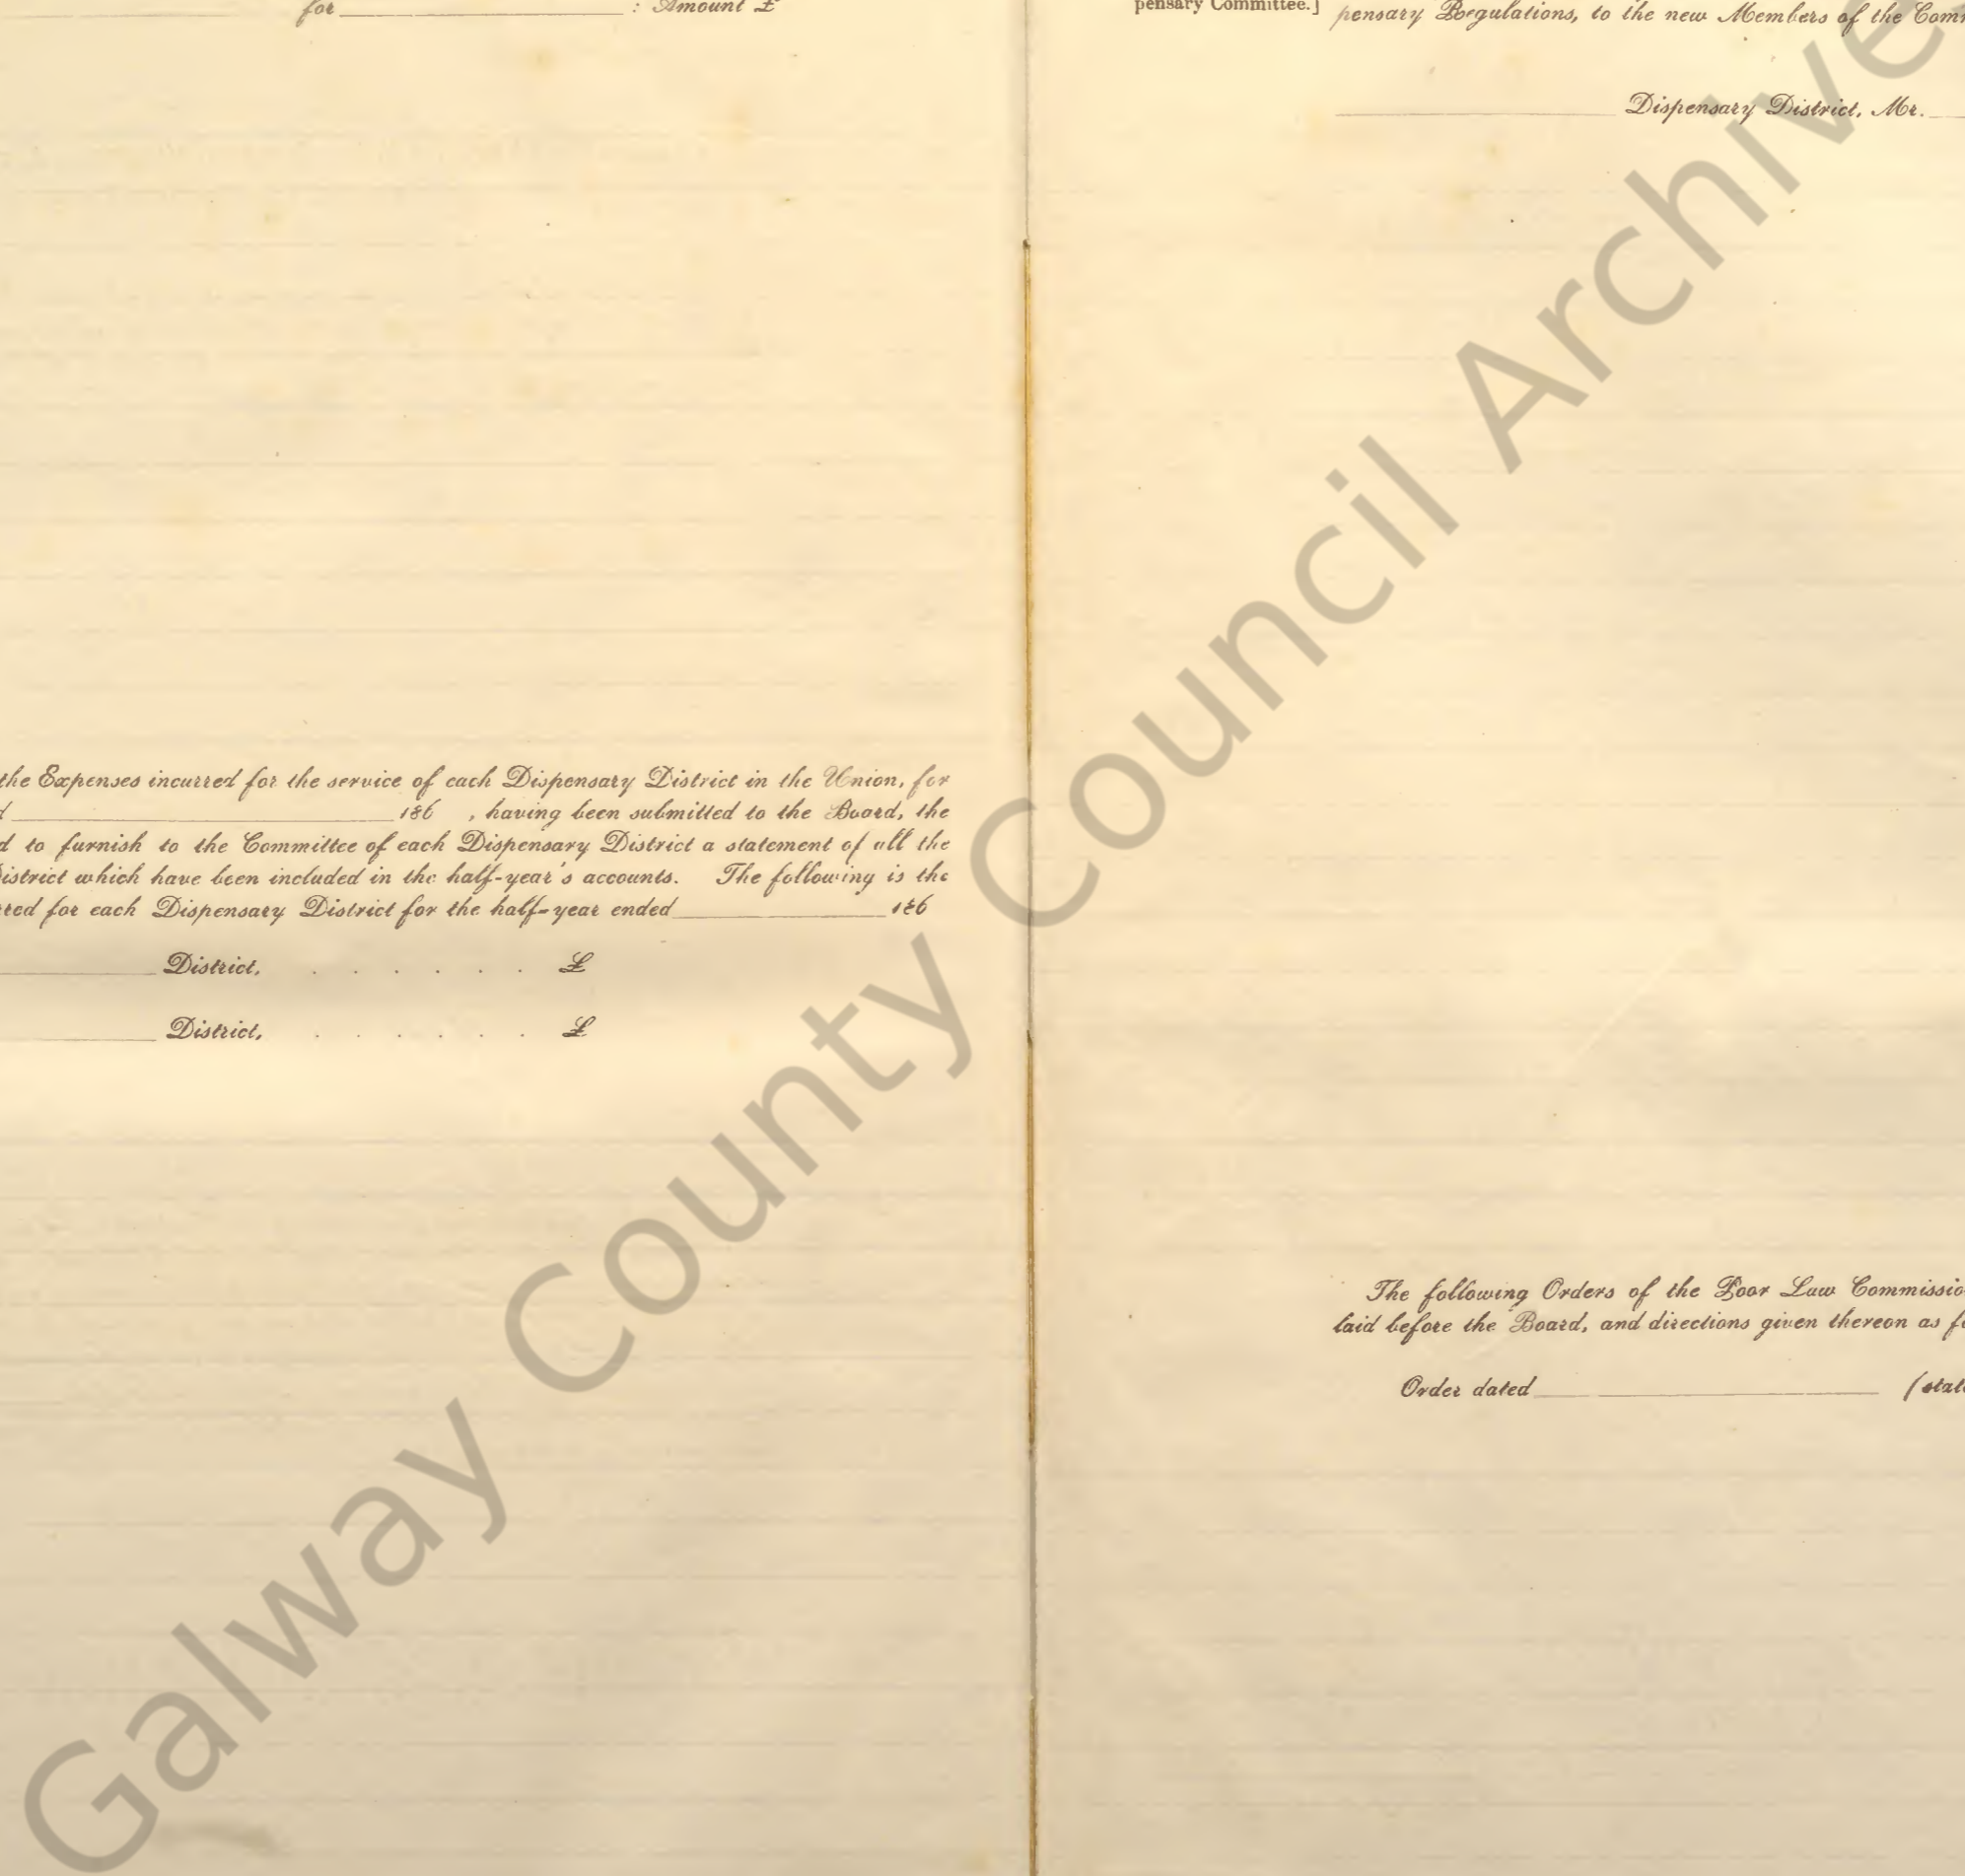 for ____________ : Amount £
the Expenses incurred for the service of each Dispensary District in the Union, for
____________ 186 , having been submitted to the Board, the
d to furnish to the Committee of each Dispensary District a statement of all the
District which have been included in the half-year's accounts. The following is the
rred for each Dispensary District for the half-year ended ____________ 186
____________ District, . . . . . . £
____________ District, . . . . . . £
pensary Committee.]
pensary Regulations, to the new Members of the Comm
____________ Dispensary District, Mr. ____
The following Orders of the Poor Law Commissio
laid before the Board, and directions given thereon as fo
Order dated ____________ (stat
Galway County Council Archive